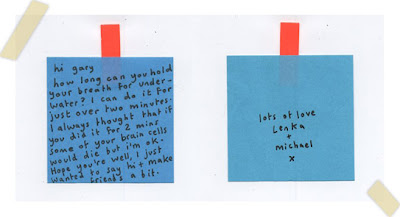 hi gary
how long can you hold
your breath for under-
water? I can do it for
just over two minutes.
I always thought that if
you did it for 2 mins
some of your brain cells
would die but i'm ok.
Hope you're well, I just
wanted to say hi + make
friends a bit.
lots of love
Lenka
+
michael
x